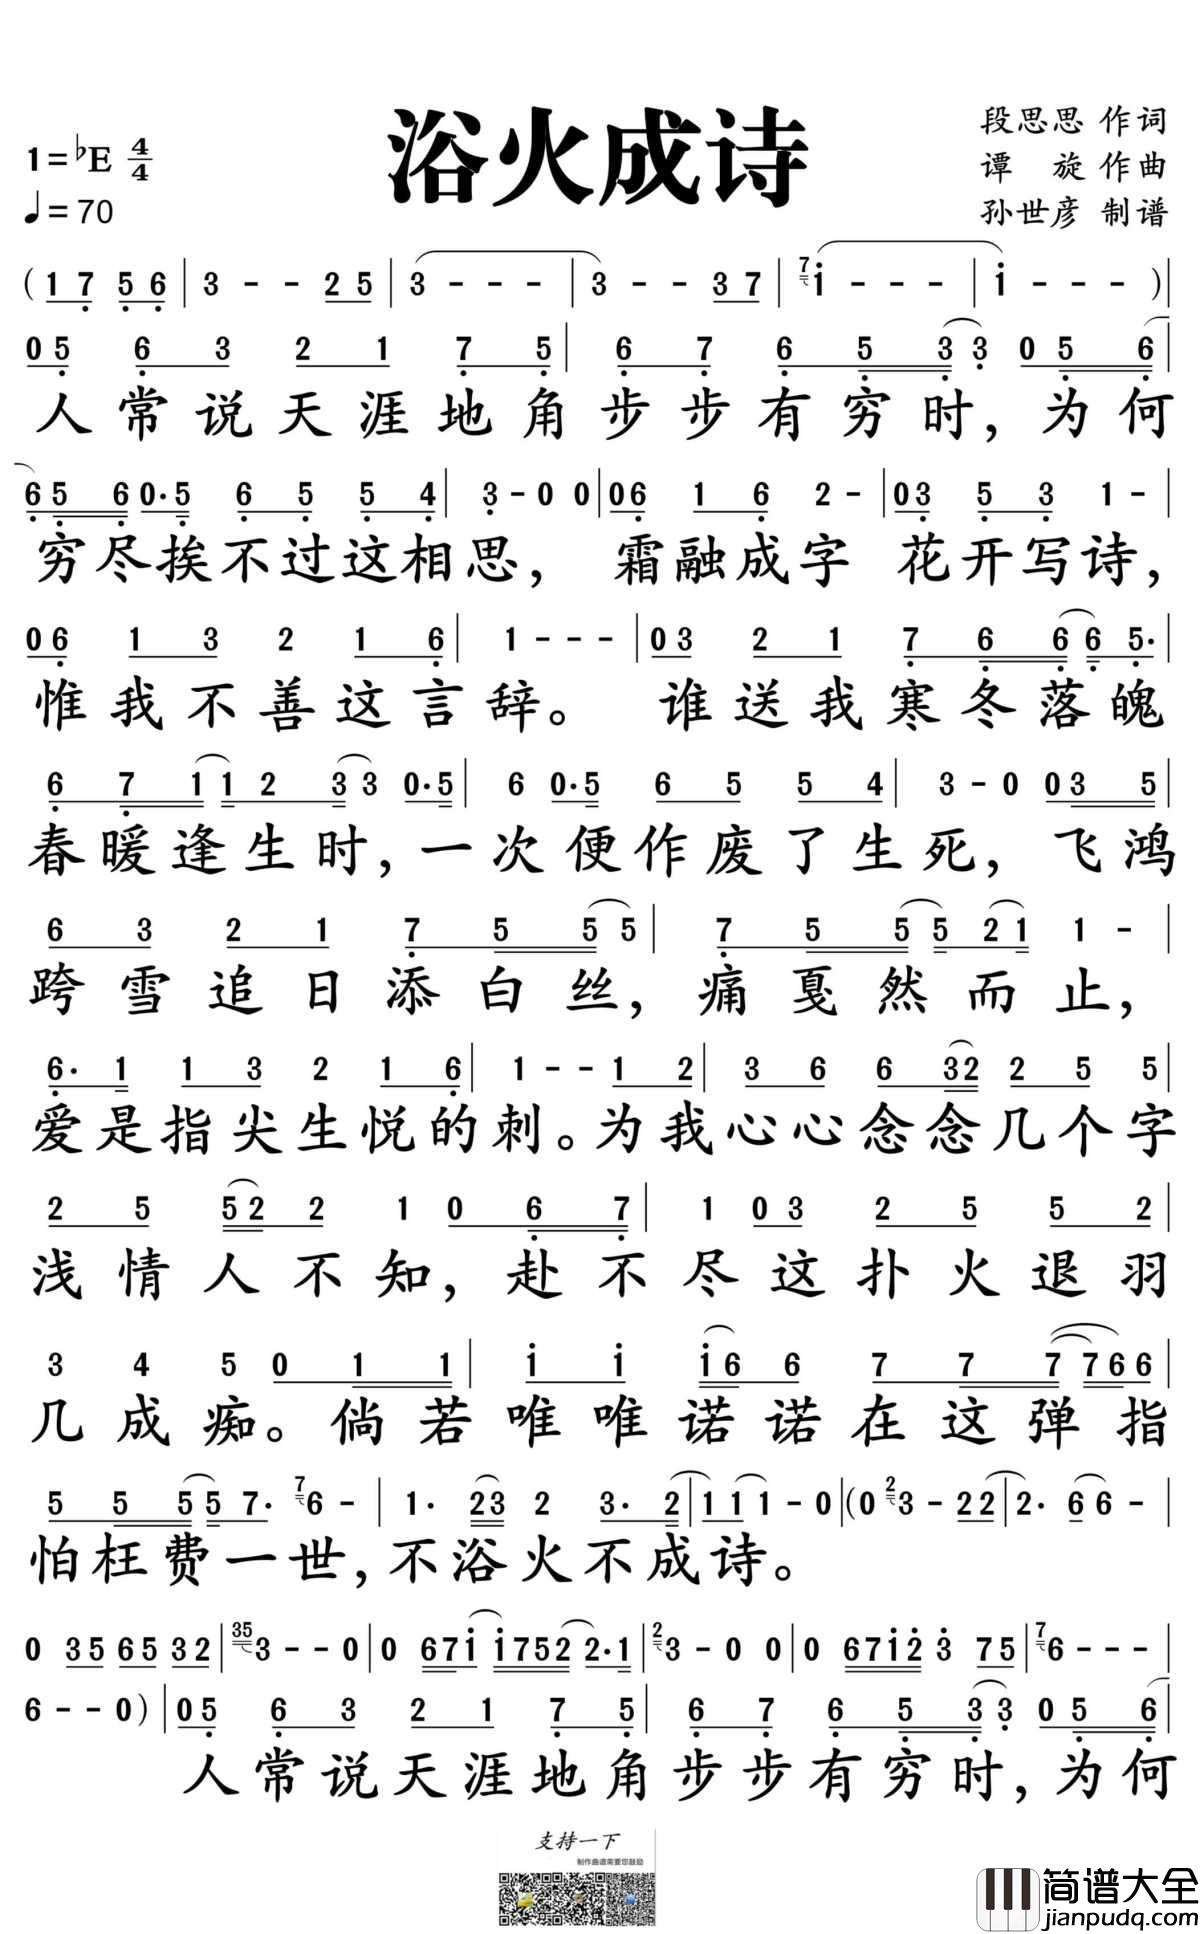 浴火成诗
1=♭E 4/4
♩=70
段思思 作词
谭 旋 作曲
孙世彦 制谱
( 1 7 5 6 | 3 - - 2 5 | 3 - - - | 3 - - 3 7 | 7 i - - - | i - - - )|
0 5 6 3 2 1 7 5 | 6 7 6 5 3 3 0 5 6 |
人常说天涯地角步步有穷时,为何
6 5 6 0· 5 6 5 5 4 | 3 - 0 0 | 0 6 1 6 2 - | 0 3 5 3 1 - |
穷尽挨不过这相思, 霜融成字 花开写诗,
0 6 1 3 2 1 6 | 1 - - - | 0 3 2 1 7 6 6 6 5· |
惟我不善这言辞。 谁送我寒冬落魄
6 7 1 1 2 3 3 0· 5 | 6 0· 5 6 5 5 4 | 3 - 0 0 3 5 |
春暖逢生时,一次便作废了生死,飞鸿
6 3 2 1 7 5 5 5 | 7 5 5 5 2 1 1 - |
跨雪追日添白丝,痛戛然而止,
6· 1 1 3 2 1 6 | 1 - - 1 2 | 3 6 6 3 2 2 5 5 |
爱是指尖生悦的刺。为我心心念念几个字
2 5 5 2 2 1 0 6 7 | 1 0 3 2 5 5 2 |
浅情人不知,赴不尽这扑火退羽
3 4 5 0 1 1 | i i i 6 6 7 7 7 7 6 6 |
几成痴。倘若唯唯诺诺在这弹指
5 5 5 5 7· 7 6 - | 1· 2 3 2 3· 2 | 1 1 1 - 0 |( 0 2 3 - 2 2 | 2· 6 6 - |
怕枉费一世,不浴火不成诗。
0 3 5 6 5 3 2 | 35 3 - - 0 | 0 6 7 i i 7 5 2 2· 1 | 2 3 - 0 0 | 0 6 7 i 2 3 7 5 | 7 6 - - - |
6 - - 0 ) | 0 5 6 3 2 1 7 5 | 6 7 6 5 3 3 0 5 6 |
人常说天涯地角步步有穷时,为何
支持一下
制作曲谱需要您鼓励
简谱大全
jianpudq.com